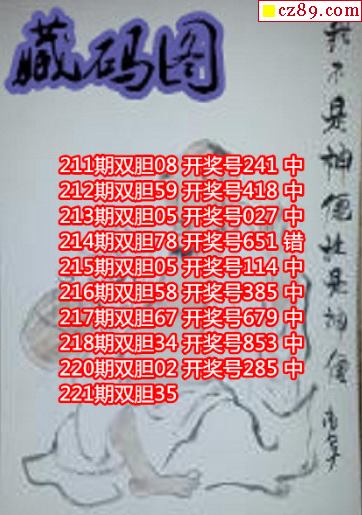 cz89.com
藏码图
我不是神便社是神仙
211期双胆08 开奖号241 中
212期双胆59 开奖号418 中
213期双胆05 开奖号027 中
214期双胆78 开奖号651 错
215期双胆05 开奖号114 中
216期双胆58 开奖号385 中
217期双胆67 开奖号679 中
218期双胆34 开奖号853 中
220期双胆02 开奖号285 中
221期双胆35